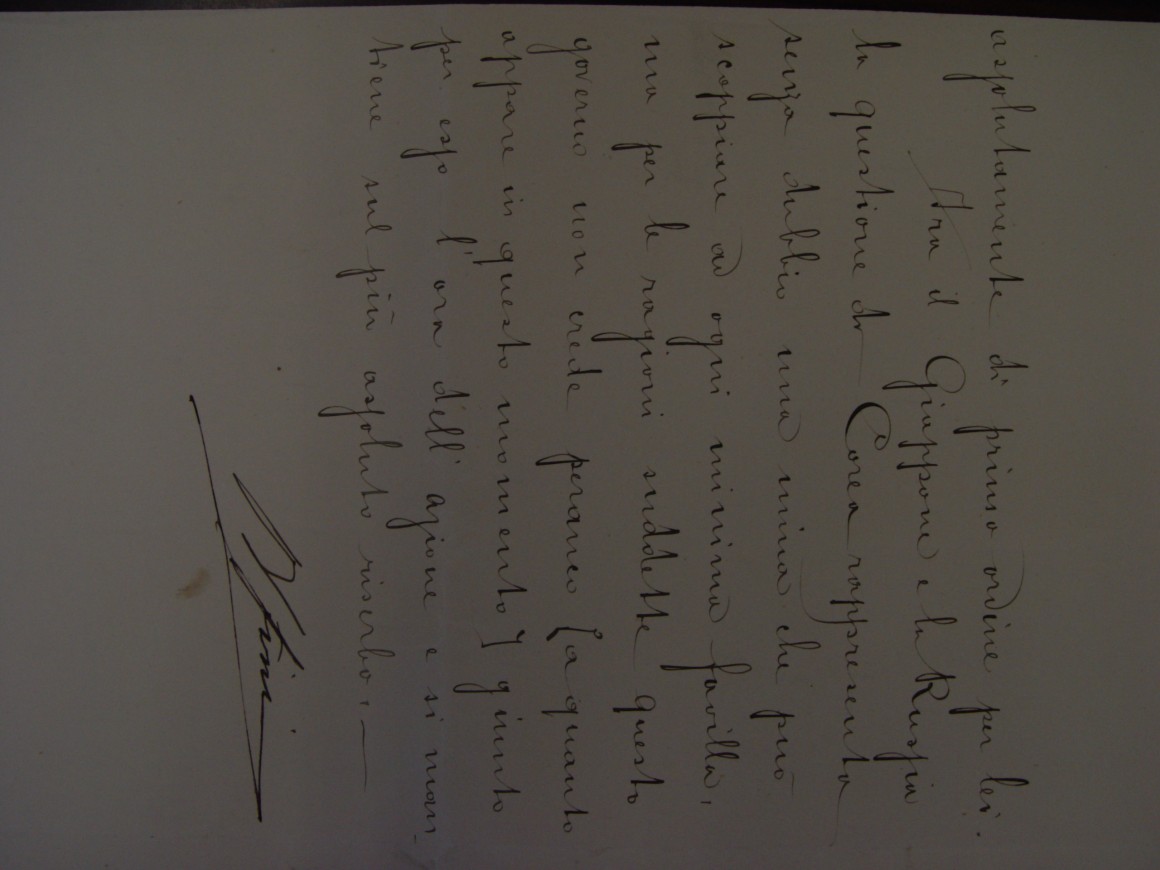 assolutamente di primo ordine per lei.
Tra il Giappone e la Russia
la questione di Corea rappresenta
senza dubbio una mina che può
scoppiare ad ogni minima favilla,
ma per le ragioni suddette questo
governo non crede peranco (a quanto
appare in questo momento) giunto
per esso l'ora dell'azione e si man-
tiene sul più assoluto riserbo. —